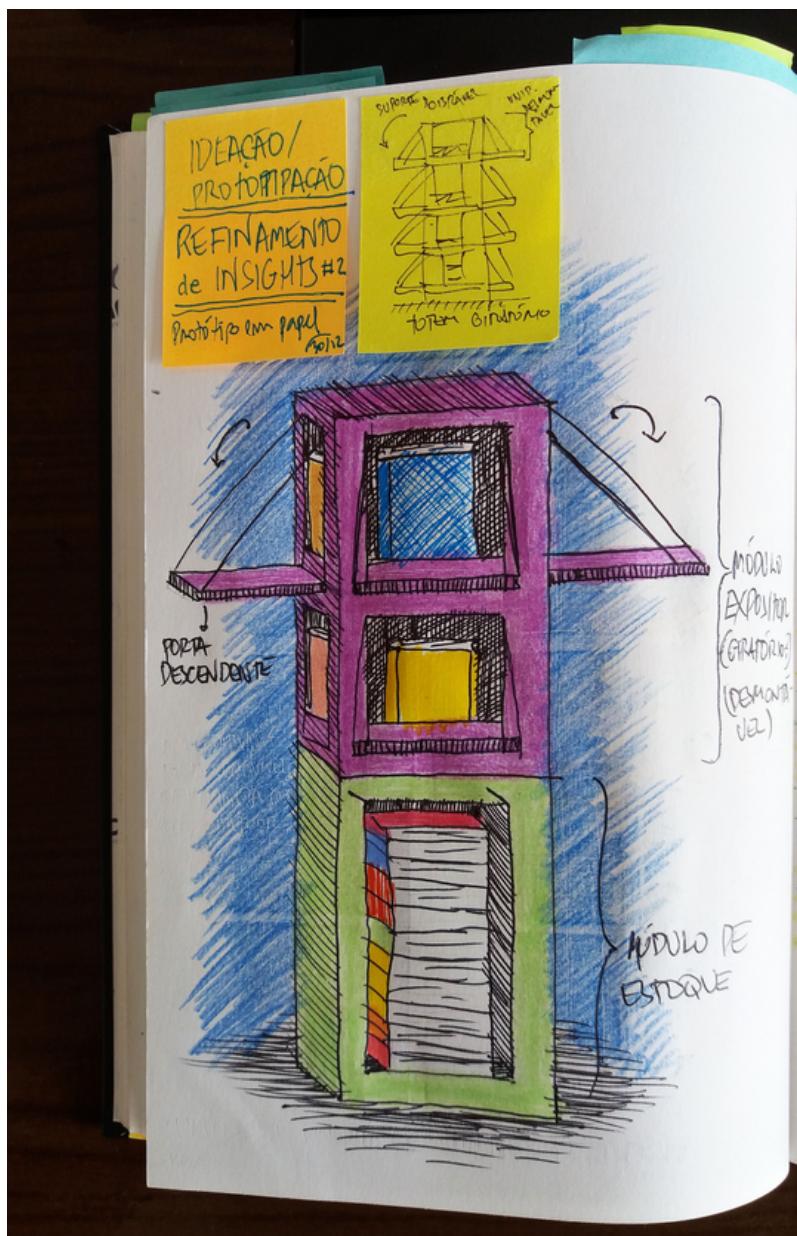 IDEAÇÃO/
PROTOTIPAÇÃO
REFINAMENTO
de INSIGHTS #2
Protótipo em papel
30/12
SUPORTE
TOTEM GIRATÓRIO
PORTA
DESCENDENTE
MÓDULO
EXPOSITOR
(GIRATÓRIO?)
(DESMONTÁ-
VEL)
MÓDULO DE
ESTOQUE